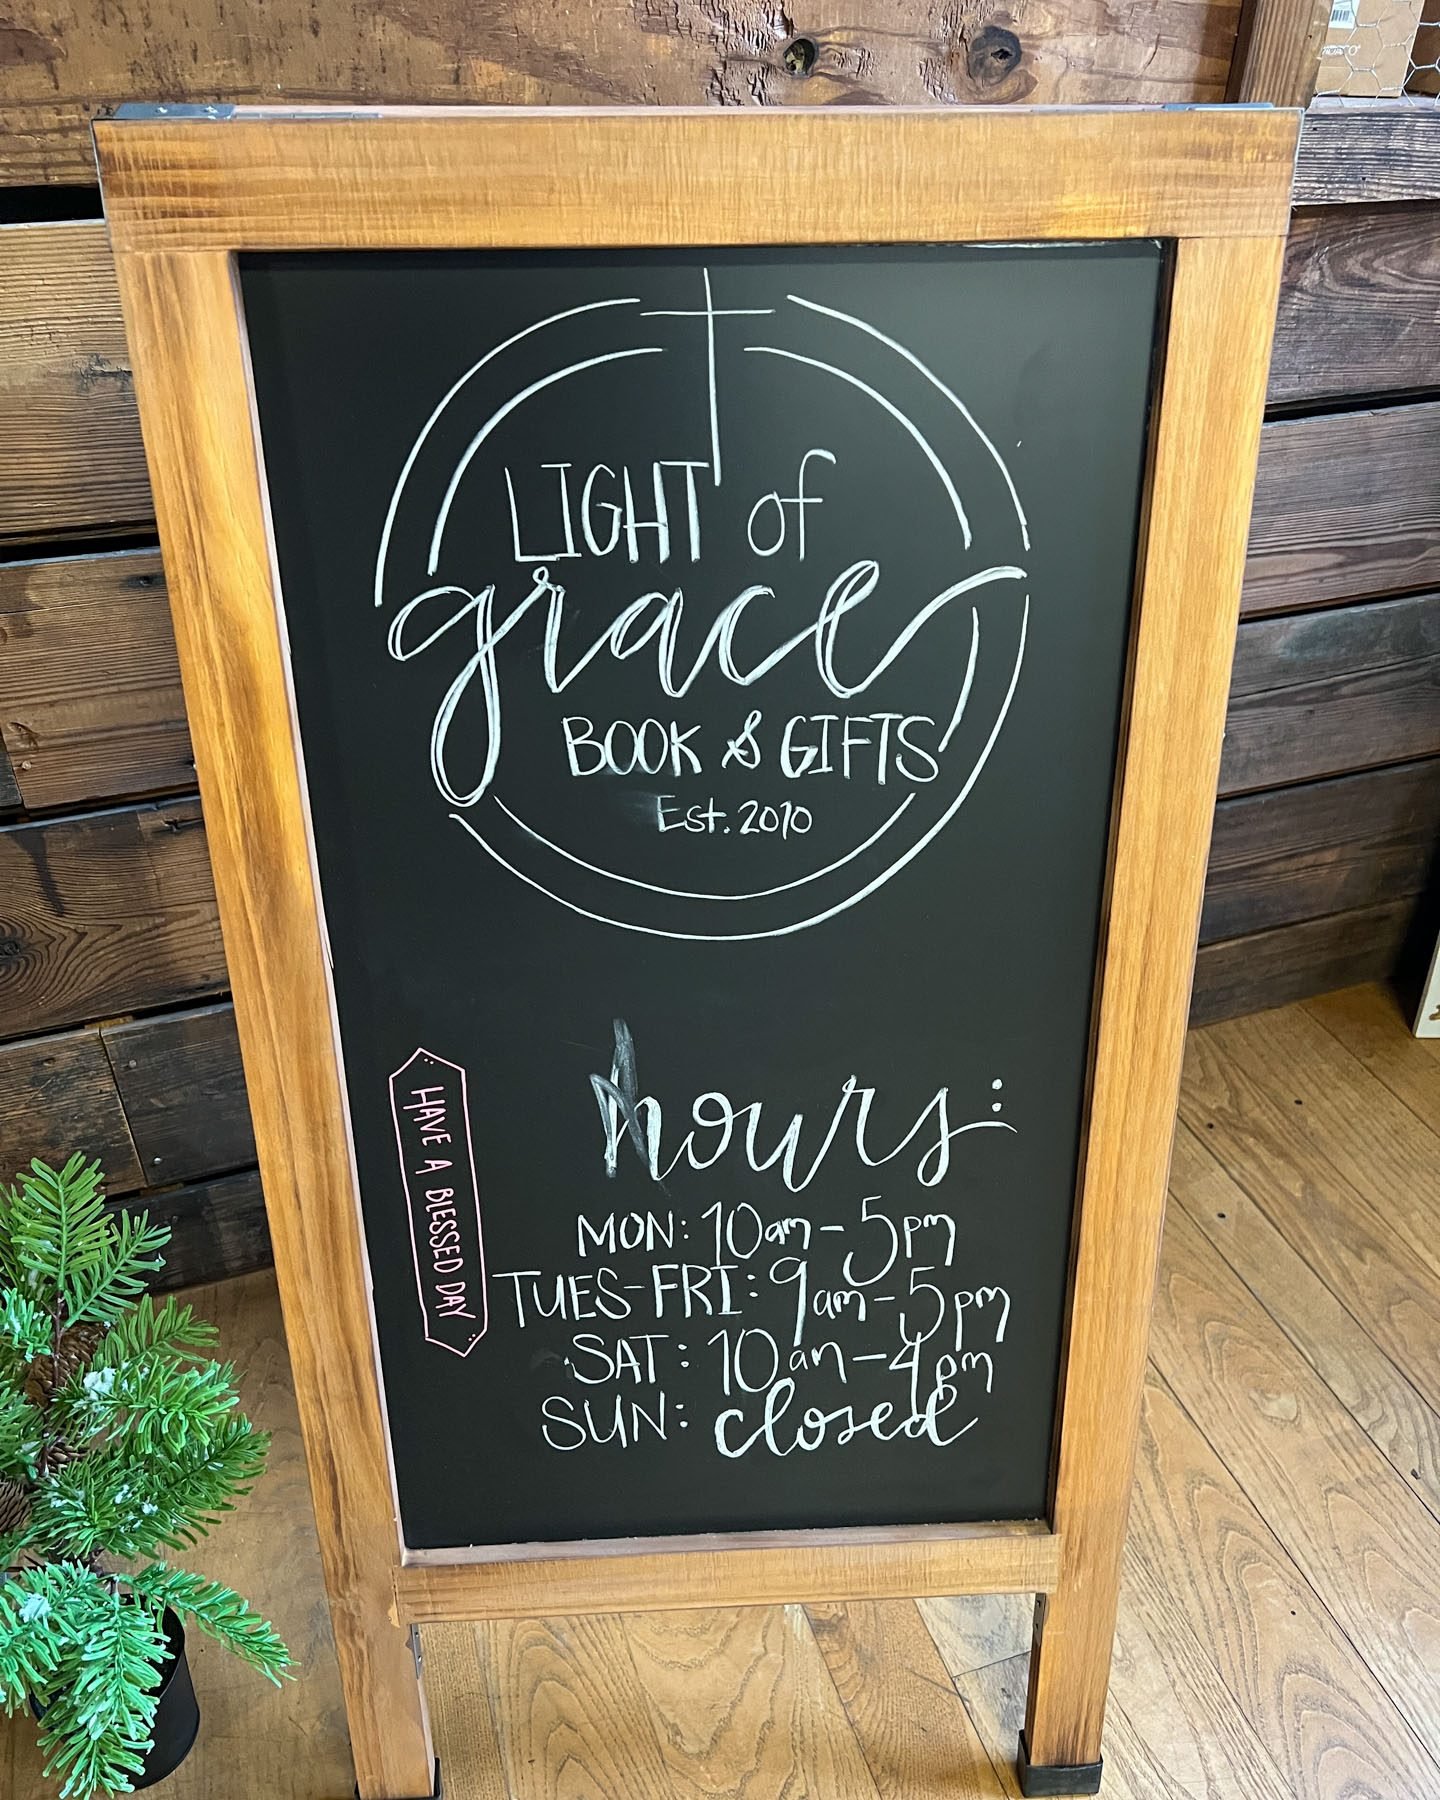 LIGHT of
grace
BOOK & GIFTS
Est. 2010
hours:
MON: 10am - 5pm
TUES-FRI: 9am - 5pm
SAT: 10am - 4pm
SUN: closed
HAVE A BLESSED DAY